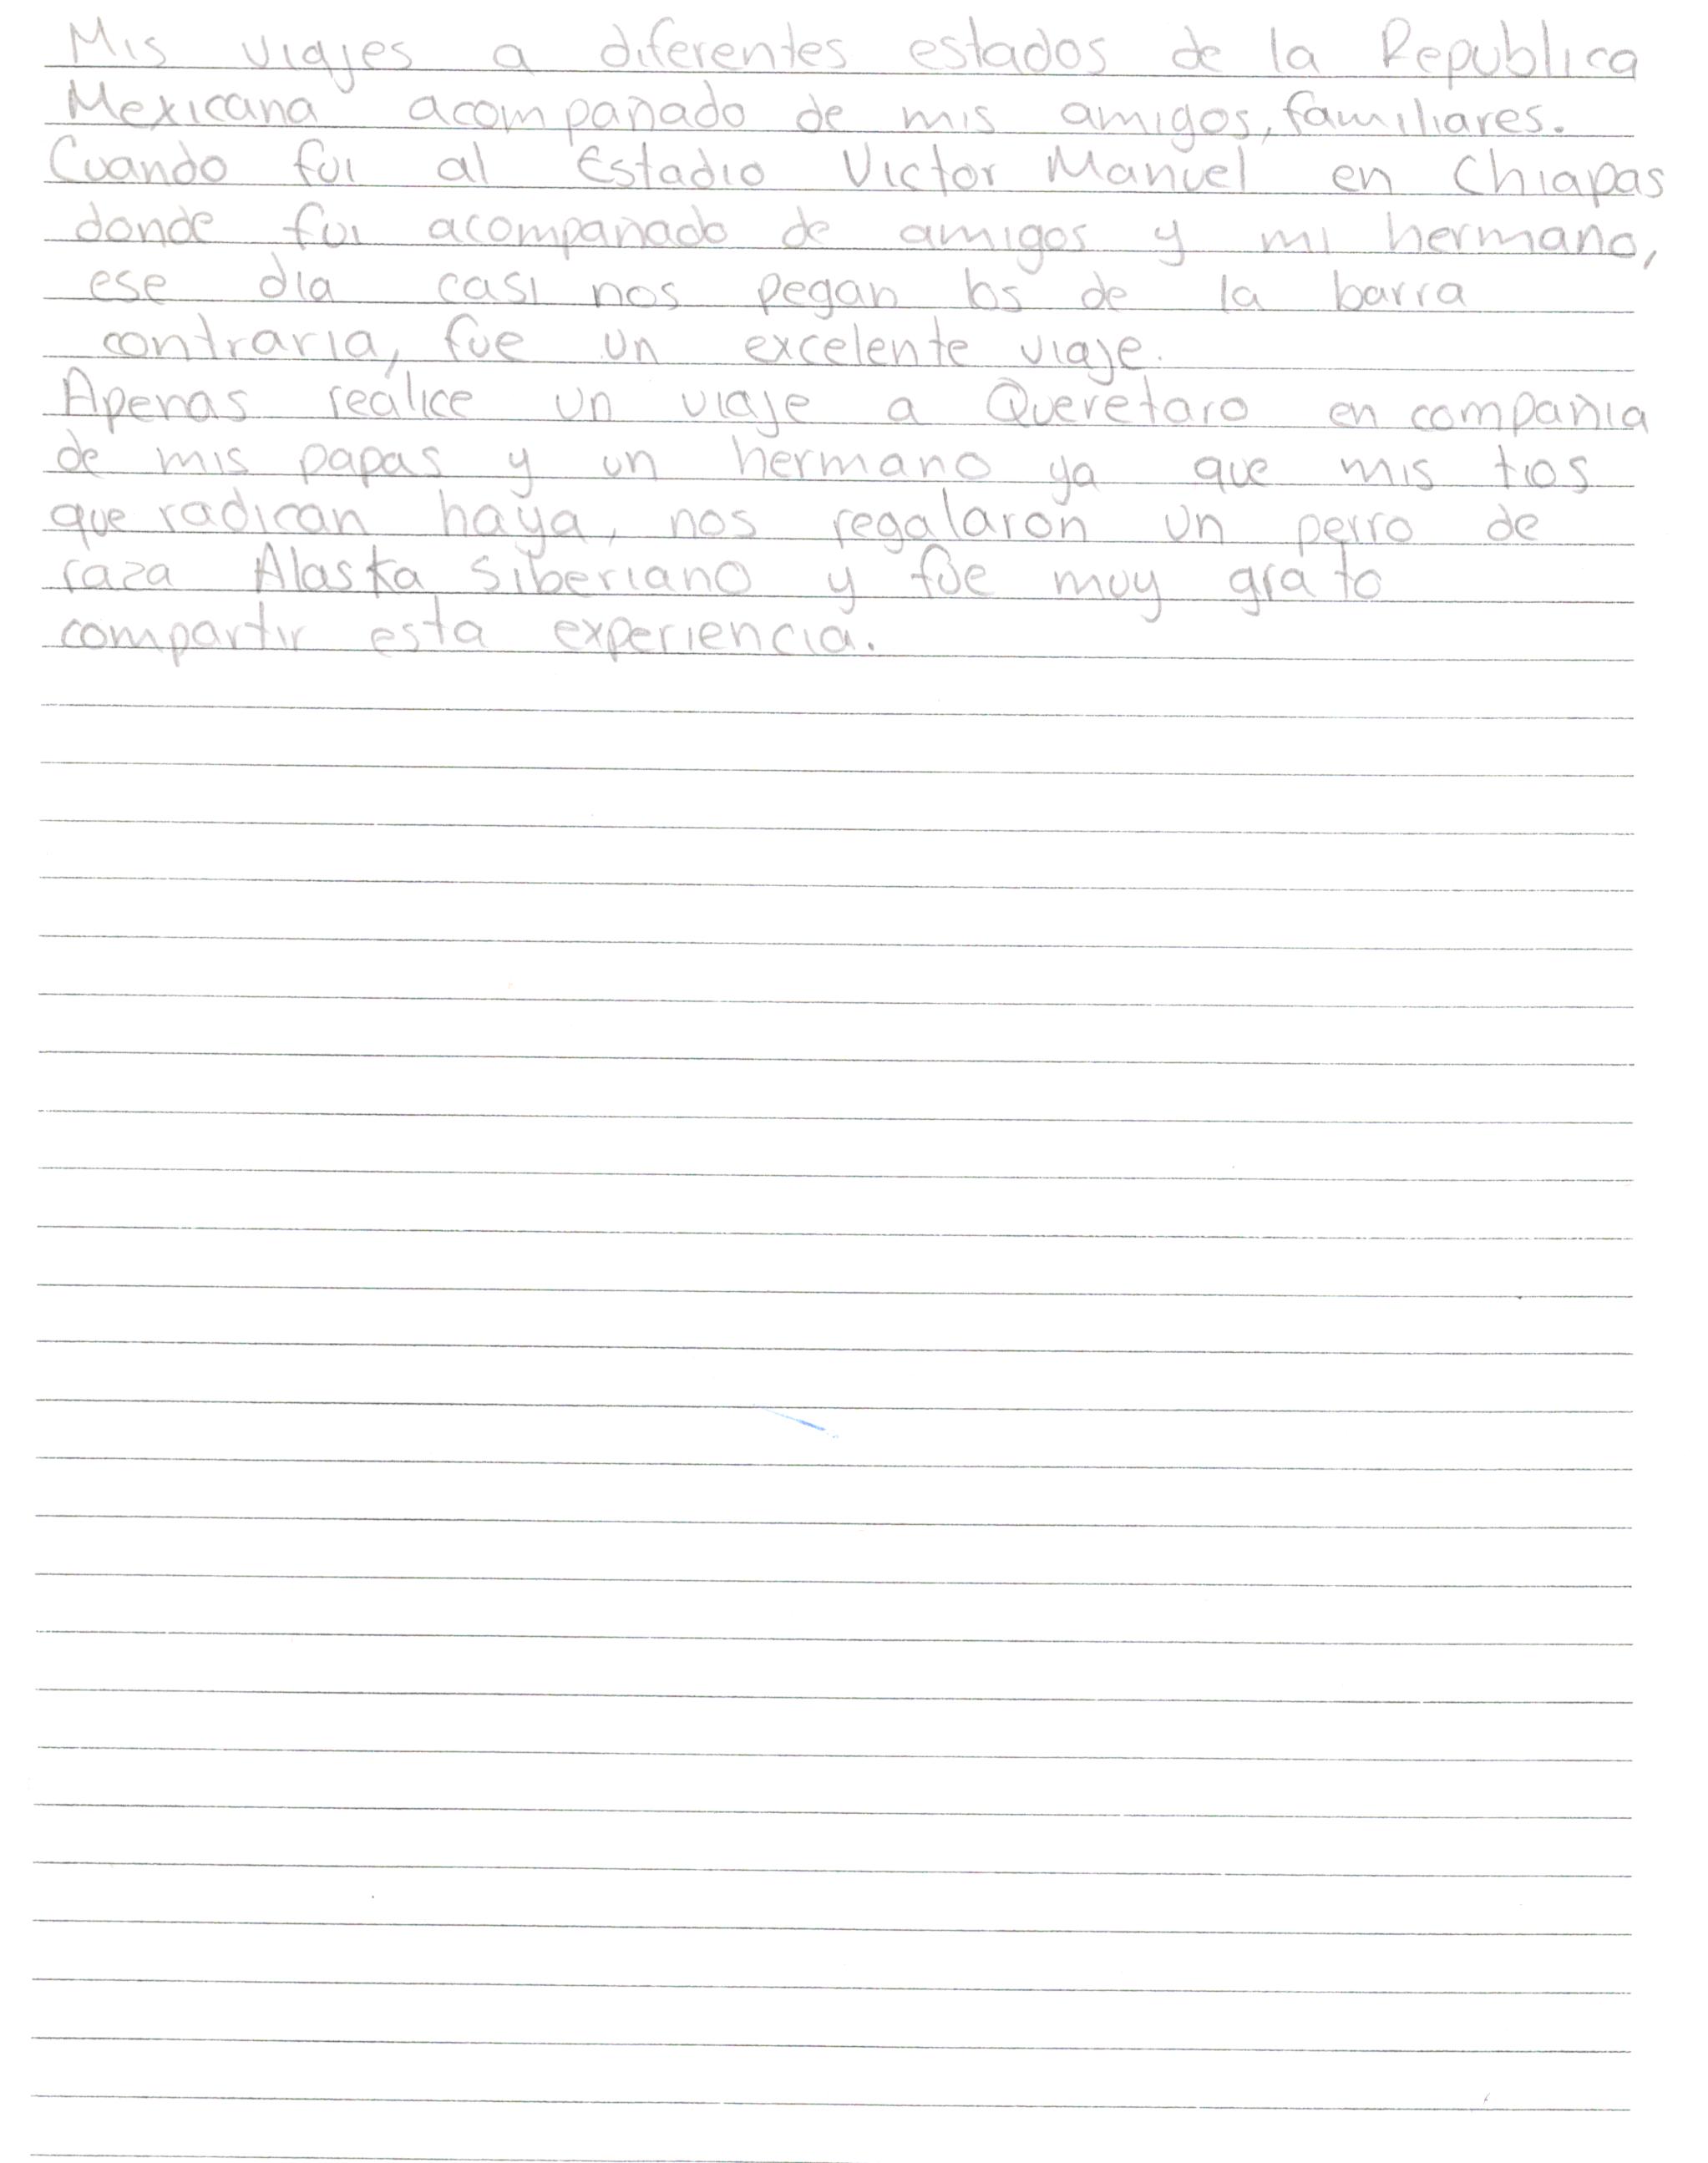 Mis viajes a diferentes estados de la Republica
Mexicana acompañado de mis amigos, familiares.
Cuando fui al Estadio Victor Manuel en Chiapas
donde fui acompañado de amigos y mi hermano,
ese dia casi nos pegan los de la barra
contraria, fue un excelente viaje.
Apenas realice un viaje a Queretaro en compañia
de mis papas y un hermano ya que mis tios
que radican haya, nos regalaron un perro de
raza Alaska Siberiano y fue muy grato
compartir esta experiencia.